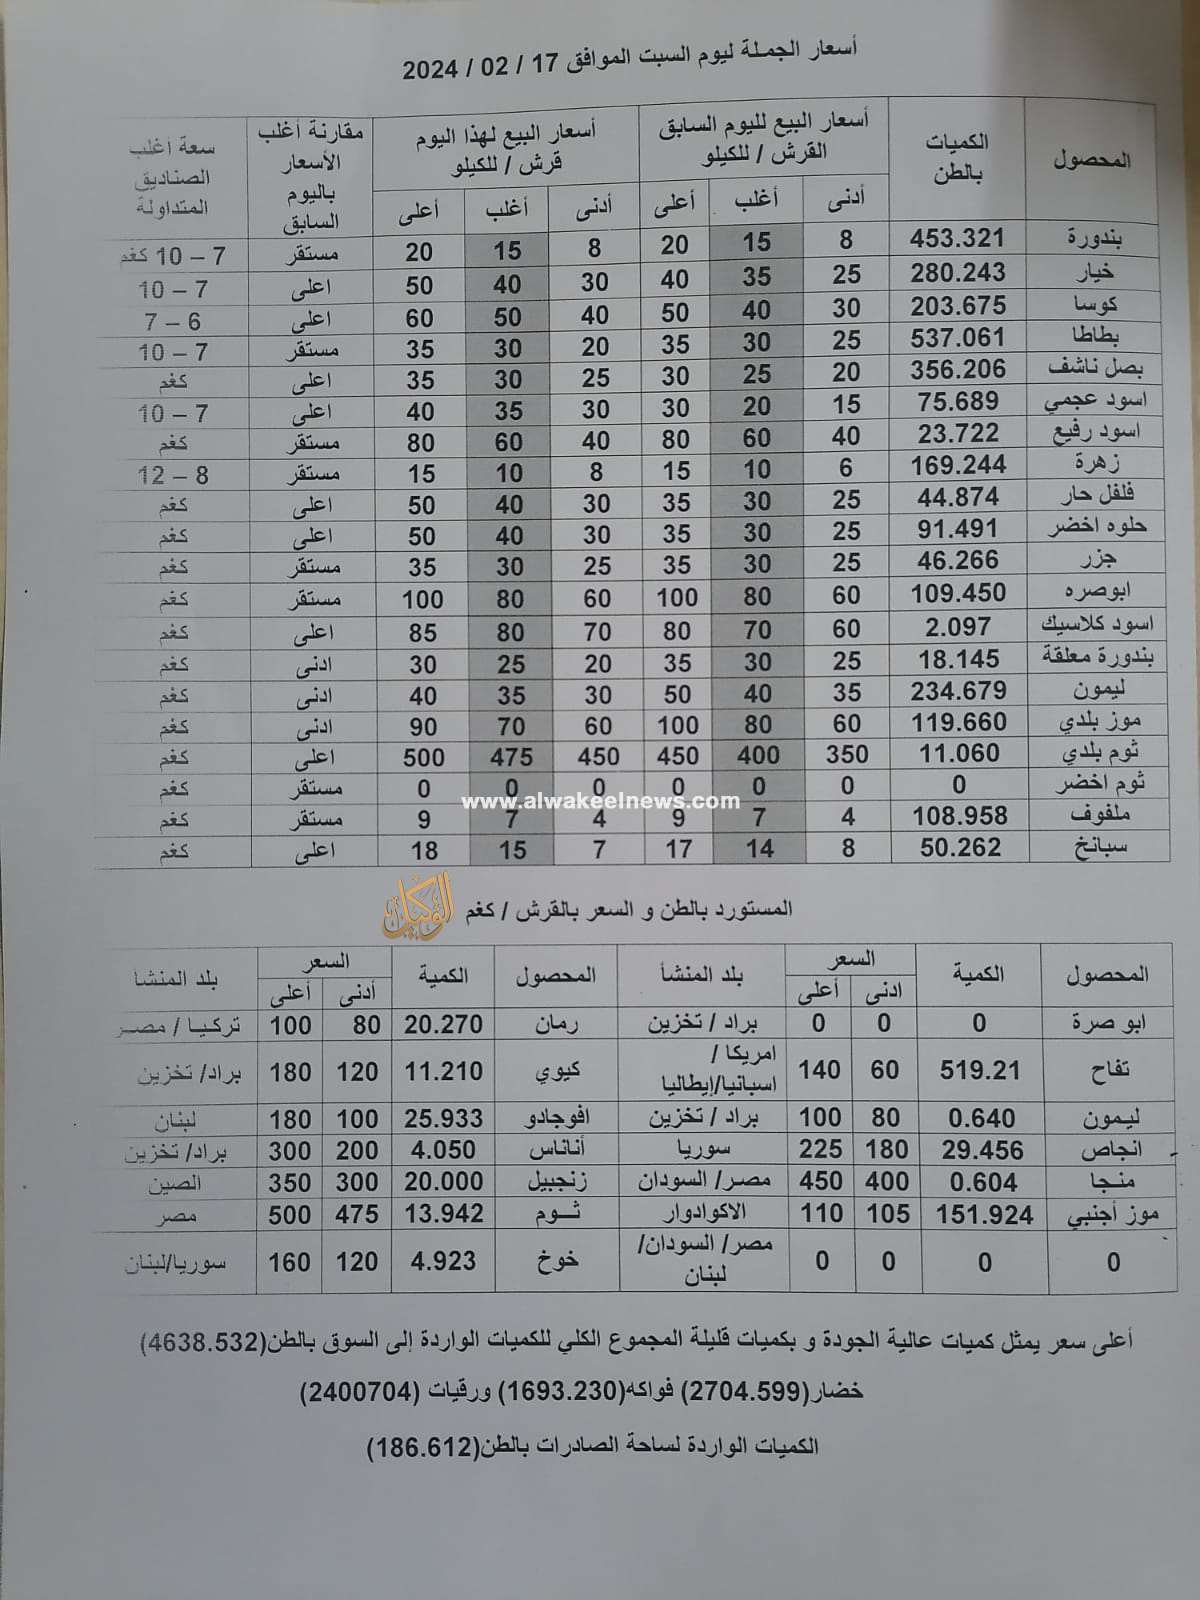 أسعار الجملة ليوم السبت الموافق 17 / 02 / 2024
المحصول الكميات بالطن أسعار البيع لليوم السابق القرش / للكيلو أسعار البيع لهذا اليوم قرش / للكيلو مقارنة أغلب الأسعار باليوم السابق سعة أغلب الصناديق المتداولة
أدنى أغلب أعلى أدنى أغلب أعلى
بندورة 453.321 8 15 20 8 15 20 مستقر 7 – 10 كغم
خيار 280.243 25 35 40 30 40 50 اعلى 7 – 10
كوسا 203.675 30 40 50 40 50 60 اعلى 6 – 7
بطاطا 537.061 25 30 35 20 30 35 مستقر 7 – 10
بصل ناشف 356.206 20 25 30 25 30 35 اعلى كغم
اسود عجمي 75.689 15 20 30 30 35 40 اعلى 7 – 10
اسود رفيع 23.722 40 60 80 40 60 80 مستقر كغم
زهرة 169.244 6 10 15 8 10 15 مستقر 8 – 12
فلفل حار 44.874 25 30 35 30 40 50 اعلى كغم
حلوه اخضر 91.491 25 30 35 30 40 50 اعلى كغم
جزر 46.266 25 30 35 25 30 35 مستقر كغم
ابوصره 109.450 60 80 100 60 80 100 مستقر كغم
اسود كلاسيك 2.097 60 70 80 70 80 85 اعلى كغم
بندورة معلقة 18.145 25 30 35 20 25 30 ادنى كغم
ليمون 234.679 35 40 50 30 35 40 ادنى كغم
موز بلدي 119.660 60 80 100 60 70 90 ادنى كغم
ثوم بلدي 11.060 350 400 450 450 475 500 اعلى كغم
ثوم اخضر 0 0 0 0 0 0 0 مستقر كغم
www.alwakeelnews.com
ملفوف 108.958 4 7 9 4 7 9 مستقر كغم
سبانخ 50.262 8 14 17 7 15 18 اعلى كغم
المستورد بالطن و السعر بالقرش / كغم
الوكيل
المحصول الكمية السعر بلد المنشأ المحصول الكمية السعر بلد المنشأ
ادنى أعلى أدنى أعلى
ابو صرة 0 0 0 براد / تخزين رمان 20.270 80 100 تركيا / مصر
تفاح 519.21 60 140 امريكا / اسبانيا/إيطاليا كيوي 11.210 120 180 براد/ تخزين
ليمون 0.640 80 100 براد / تخزين افوجادو 25.933 100 180 لبنان
انجاص 29.456 180 225 سوريا أناناس 4.050 200 300 براد/ تخزين
منجا 0.604 400 450 مصر/ السودان زنجبيل 20.000 300 350 الصين
موز أجنبي 151.924 105 110 الاكوادوار ثوم 13.942 475 500 مصر
0 0 0 0 مصر/ السودان/ لبنان خوخ 4.923 120 160 سوريا/لبنان
أعلى سعر يمثل كميات عالية الجودة و بكميات قليلة المجموع الكلي للكميات الواردة إلى السوق بالطن(4638.532)
خضار(2704.599) فواكه(1693.230) ورقيات (2400704)
الكميات الواردة لساحة الصادرات بالطن(186.612)